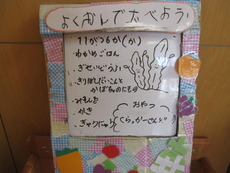 よくかんでたべよう
11がつ6か(か)
・わかめごはん
・ぎせいどうふ
・きりぼしだいこんと
かぼちゃのにもの
・みそしる
・かき
・ぎゅうにゅう
おやつ
くらっかーさんど